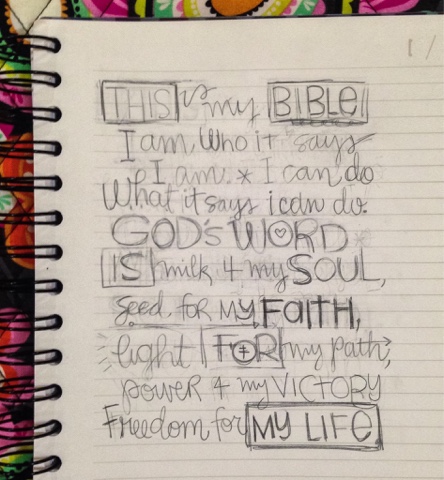 THIS is my BIBLE
I am Who it says
I am. * I can do
What it says i can do.
GOD'S WORD
IS milk 4 my SOUL,
Seed, for MY FAITH,
light FOR my path,
power 4 my VICTORY
Freedom for MY LIFE